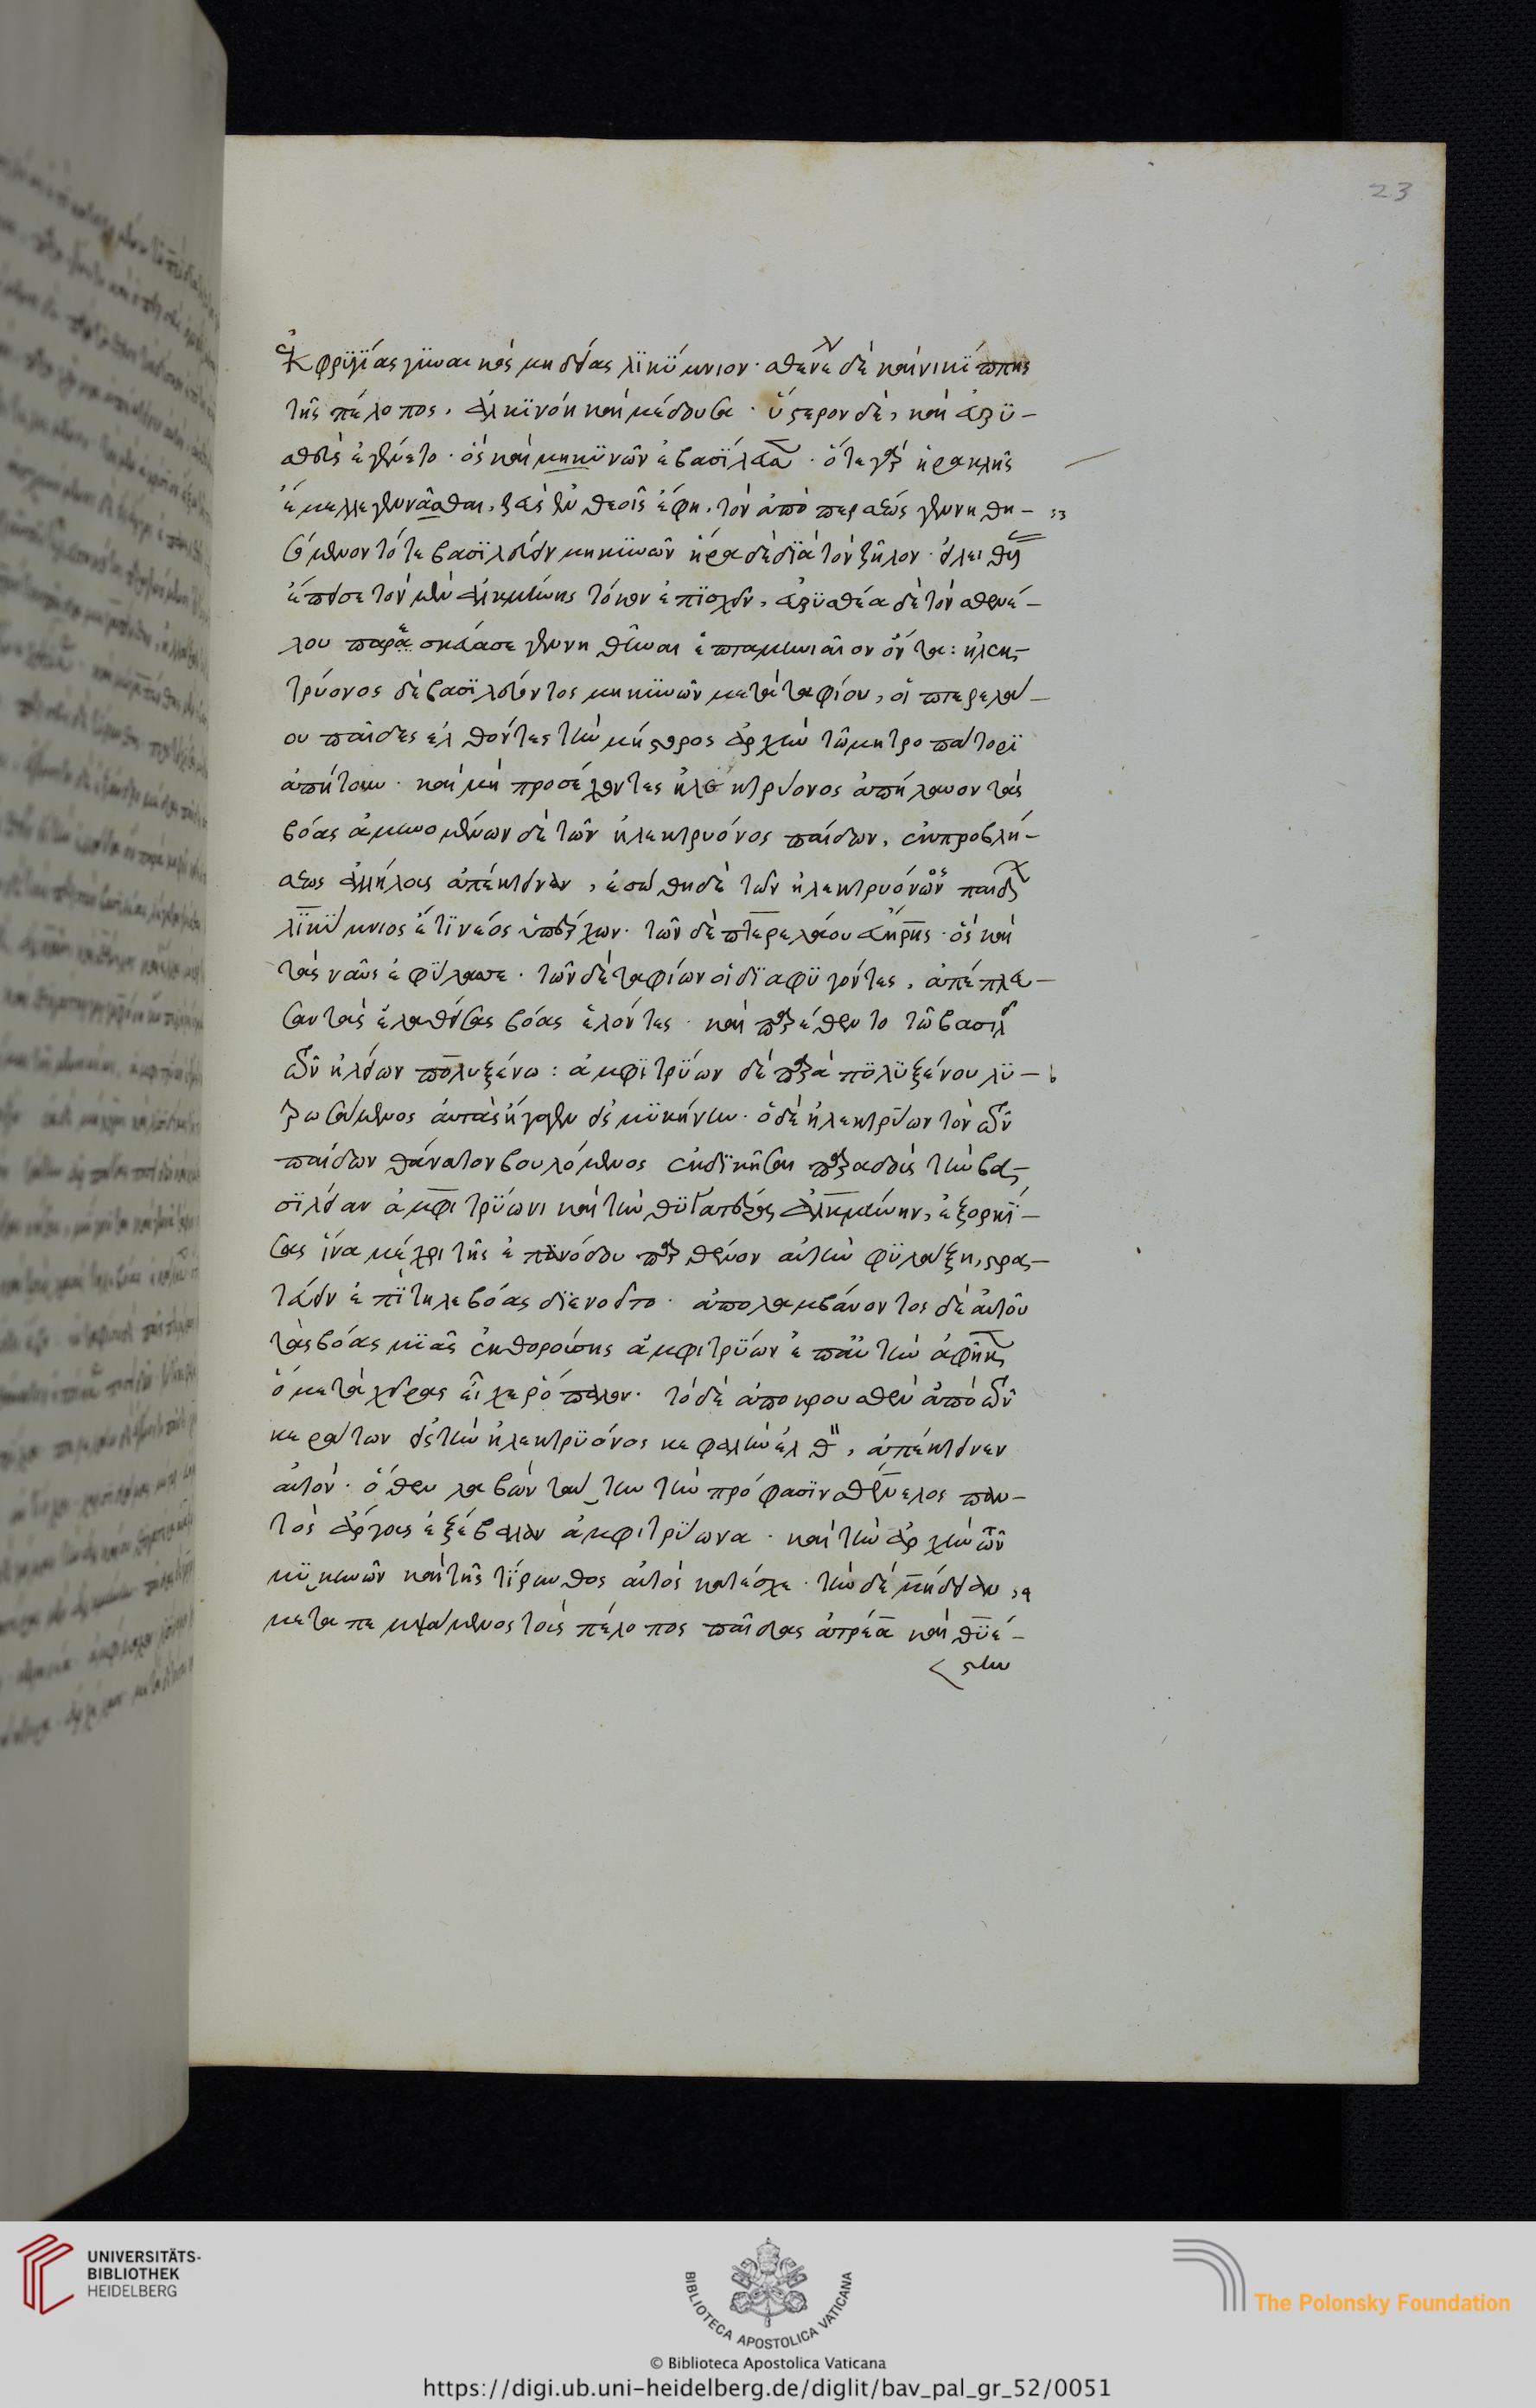 23
ἐκ φρυγίας γυναικὸς μηδείας λικύμνιον· σθενέλου δὲ καὶ νικίππης
τῆς πέλοπος, ἀλκινόη καὶ μέδουσα· ὕστερον δὲ, καὶ εὐρυ-
σθεὺς ἐγένετο· ὃς καὶ μηκυνῶν ἐβασίλευσεν· ὅτε γὰρ ἡρακλῆς
ἔμελλε γεννᾶσθαι, ζεὺς ἐν θεοῖς ἔφη, τὸν ἀπὸ περσέως γεννηθη-
σόμενον τότε βασιλεύειν μηκυνῶν ἥρα δὲ διὰ τὸν ζῆλον· εἰλείθυιαν
ἔπεισε τὸν μὲν ἀλκμήνης τόκον ἐπισχεῖν, εὐρυσθέα δὲ τὸν σθενέ-
λου παρεσκεύασε γεννηθῆναι ἑπταμηνιαῖον ὄντα: ἠλεκ-
τρύονος δὲ βασιλεύοντος μηκυνῶν μετὰ ταφίου, οἱ πτερελά-
ου παῖδες ἐλθόντες τὴν μήστορος ἀρχὴν τῶ μητροπάτορι
ἀπήτουν· καὶ μὴ προσέχοντες ἠλεκτρύονος ἀπήλαυνον τὰς
βόας ἀμυνομένων δὲ τῶν ἠλεκτρυόνος παίδων, ἐκ προκλή-
σεως ἀλλήλους ἀπέκτειναν, ἐσώθη δὲ τῶν ἠλεκτρυόνος παίδων
λικύμνιος ἔτι νέος ὑπάρχων· τῶν δὲ πτερελάου εὐήρης· ὃς καὶ
τὰς ναῦς ἐφύλασσε· τῶν δὲ ταφίων οἱ διαφυγόντες, ἀπέπλευ-
σαν τὰς ἐλαθείσας βόας ἑλόντες· καὶ παρέθεντο τῶ βασιλεῖ
τῶν ἠλείων πολυξένω: ἀμφιτρύων δὲ παρὰ πολυξένου λυ-
τρωσάμενος αὐτὰς ἤγαγεν εἰς μυκήνην· ὁ δὲ ἠλεκτρύων τὸν τῶν
παίδων θάνατον βουλόμενος ἐκδικῆσαι παραδοὺς τὴν βα-
σιλείαν ἀμφιτρύωνι καὶ τὴν θυγατέρα ἀλκμήνην, ἐξορκί-
σας ἵνα μέχρι τῆς ἐπανόδου παρθένον αὐτὴν φυλάξη, στρα-
τεύειν ἐπὶ τηλεβόας διενοεῖτο· ἀπολαμβάνοντος δὲ αὐτοῦ
τὰς βόας μιᾶς ἐκθορούσης ἀμφιτρύων ἐπ' αὐτὴν ἀφῆκεν
ὃ μετὰ χεῖρας εἶχε ῥόπαλον· τὸ δὲ ἀποκρουσθὲν ἀπὸ τῶν
κεράτων εἰς τὴν ἠλεκτρυόνος κεφαλὴν ἐλθὸν, ἀπέκτεινεν
αὐτόν· ὅθεν λαβὼν ταύτην τὴν πρόφασιν σθένελος παν-
τὸς ἄργους ἐξέβαλεν ἀμφιτρύωνα· καὶ τὴν ἀρχὴν τῶν
μυκηνῶν καὶ τῆς τίρυνθος αὐτὸς κατέσχε· τὴν δὲ μήδειαν
μεταπεμψάμενος τοὺς πέλοπος παῖδας ἀτρέα καὶ θυέ-
στην
UNIVERSITÄTS-
BIBLIOTHEK
HEIDELBERG
BIBLIOTECA APOSTOLICA VATICANA
The Polonsky Foundation
© Biblioteca Apostolica Vaticana
https://digi.ub.uni-heidelberg.de/diglit/bav_pal_gr_52/0051